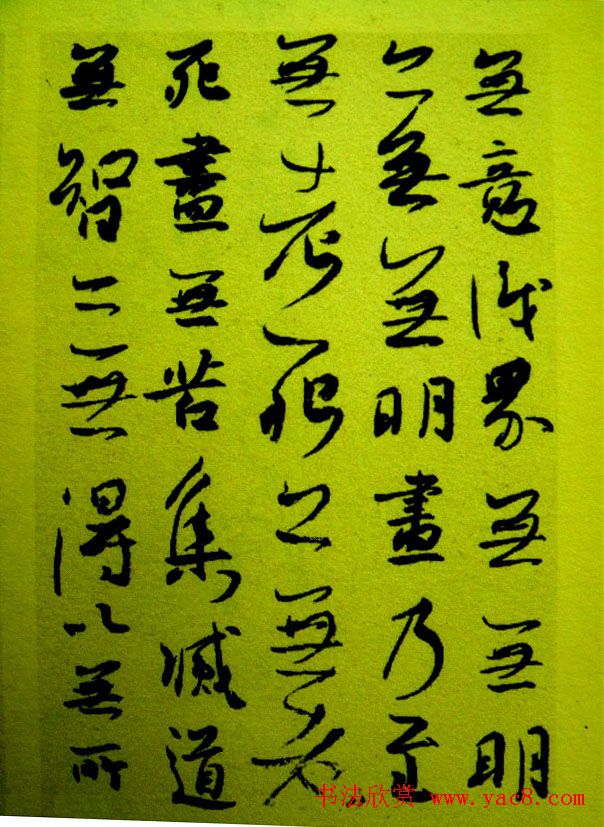 無意識界無無明
亦無無明盡乃至
無老死亦無老
死盡無苦集滅道
無智亦無得以無所
书法欣赏 www.yac8.com